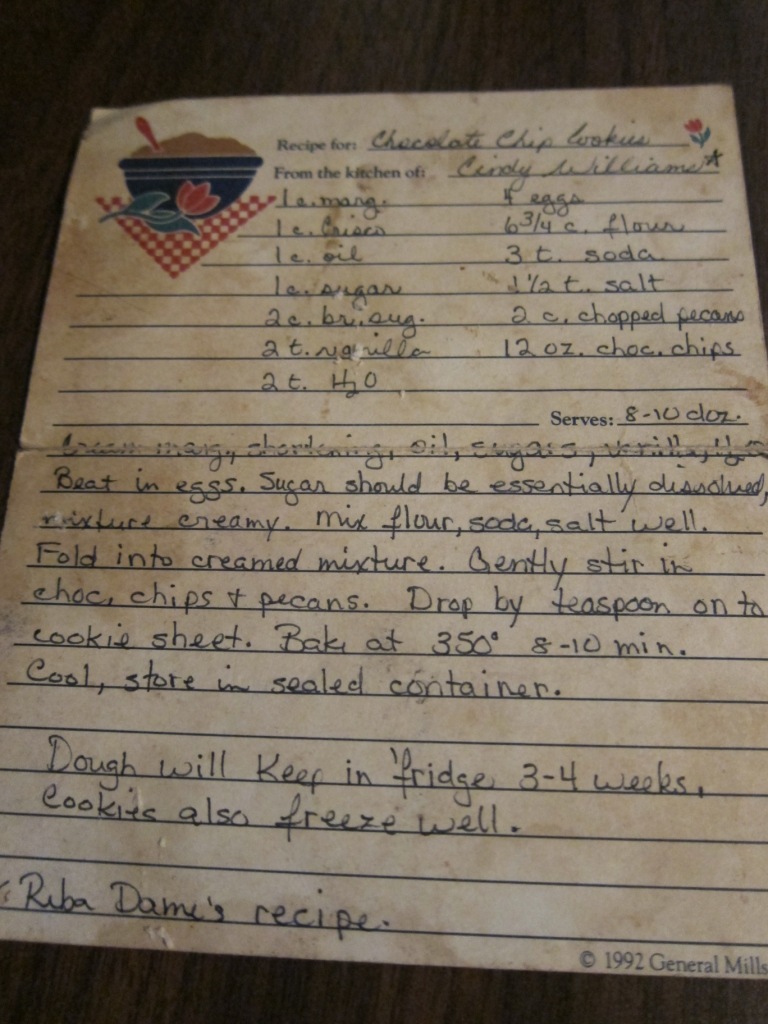 Recipe for: Chocolate Chip Cookies
From the kitchen of: Cindy Williams*
1 c. marg. 4 eggs
1 c. Crisco 6 3/4 c. flour
1 c. oil 3 t. soda
1 c. sugar 1 1/2 t. salt
2 c. br. sug. 2 c. chopped pecans
2 t. vanilla 12 oz. choc. chips
2 t. H2O
Serves: 8-10 doz.
Cream marg, shortening, oil, sugars, vanilla, H2O
Beat in eggs. Sugar should be essentially dissolved,
mixture creamy. Mix flour, soda, salt well.
Fold into creamed mixture. Gently stir in
choc, chips & pecans. Drop by teaspoon on to
cookie sheet. Bake at 350° 8-10 min.
Cool, store in sealed container.
Dough will Keep in 'fridge 3-4 weeks.
Cookies also freeze well.
Reba Dame's recipe.
© 1992 General Mills